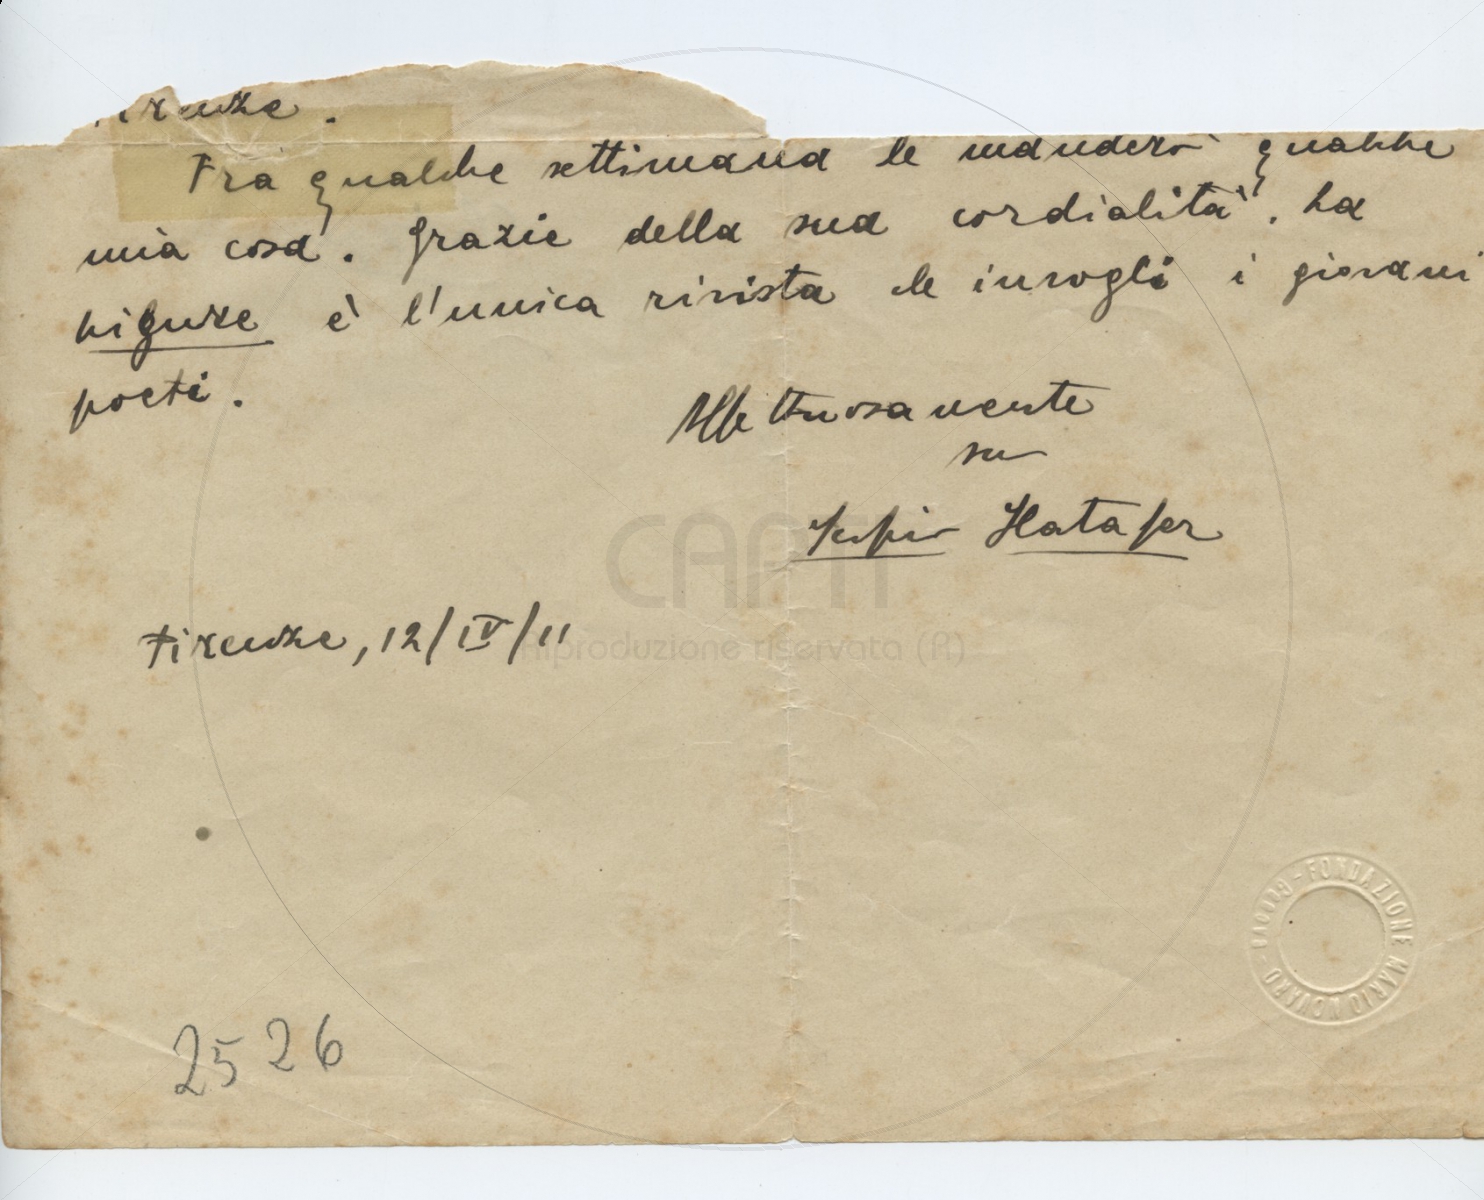 Firenze.
Fra qualche settimana le manderò qualche
mia cosa. Grazie della sua cordialità. La
Ligure è l'unica rivista che invogli i giovani
poeti.
Affettuosamente
suo
Scipio Slataper
CAPTI
Firenze, 12/IV/11
Riproduzione riservata (R)
FONDAZIONE MARIO NOVARO - GENOVA -
2526